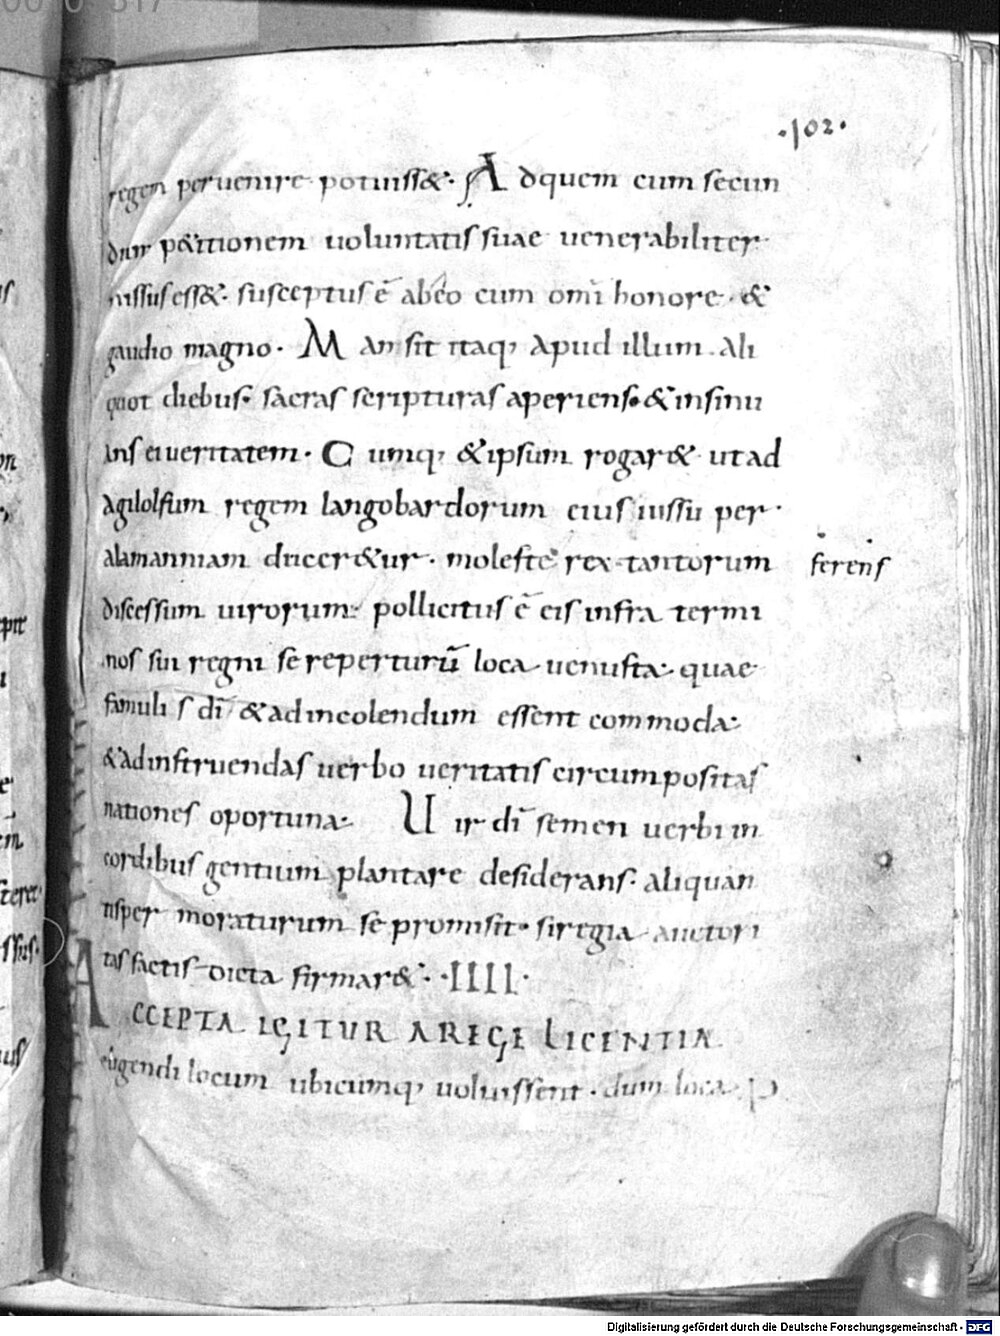 ·102·
regem peruenire potuiss&· Adquem cum secun
dum p&itionem uoluntatis suae uenerabiliter
missus ess&· susceptus ē abeo cum om̄i honore· &
gaudio magno· Mansit itaq; apud illum ali
quot diebus· sacras scripturas aperiens· & insinu
ans ei ueritatem· Cumq; & ipsum rogar& ut ad
agilolfum regem langobardorum eius iussu per
alamanniam ducer&ur· moleste rex tantorum ferens
discessum uirorum· pollicitus ē eis infra termi
nos sui regni se reperturū loca uenusta· quae
famulis dī & ad incolendum essent commoda·
& ad instruendas uerbo ueritatis circumpositas
nationes oportuna· Uir dī semen uerbi in
cordibus gentium plantare desiderans· aliquan
tisper moraturum se promisit· si regia auctori
tas factis dicta firmar&· ·IIII·
ACCEPTA IGITUR A REGE LICENTIA
eligendi locum ubicumq; uoluissent· dum loca
Digitalisierung gefördert durch die Deutsche Forschungsgemeinschaft - DFG